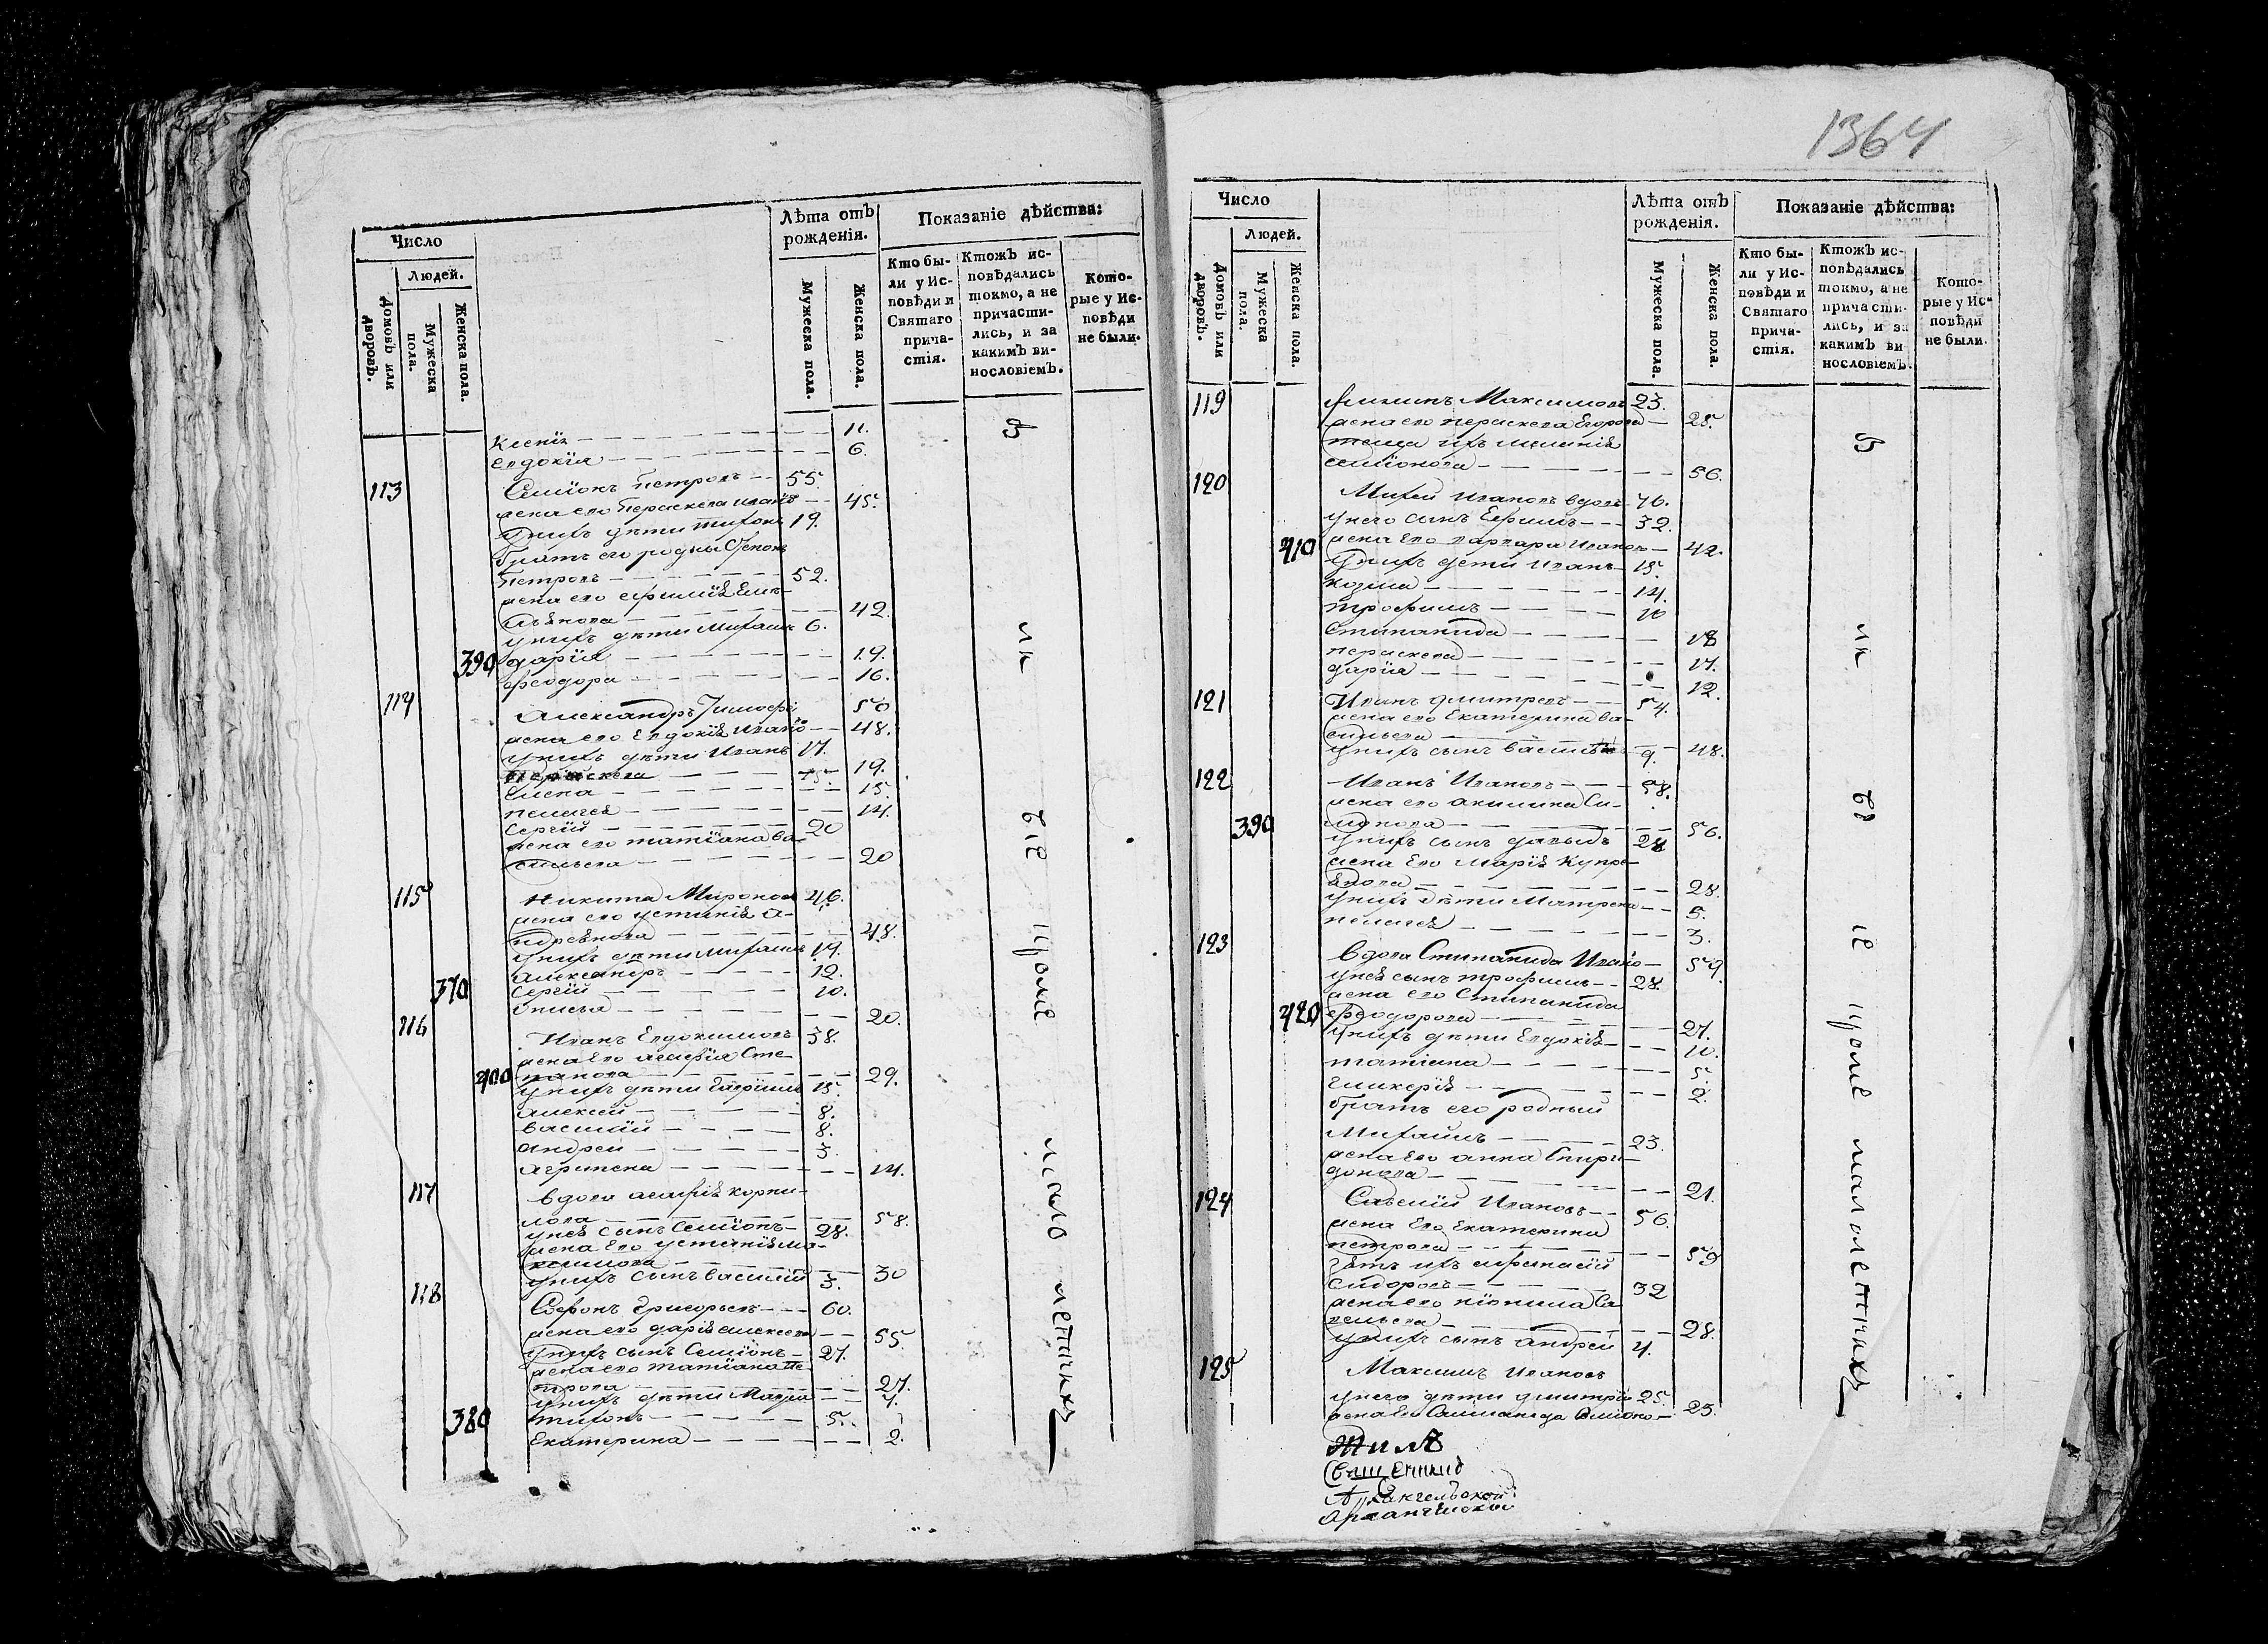 1364
Число
Лѣта отъ рожденія.
Показаніе дѣйства:
Людей.
Домовъ или дворовъ.
Мужеска пола.
Женска пола.
Мужеска пола.
Женска пола.
Кто бы-
ли у Ис-
повѣди и
Святаго
прича-
стія.
Ктожъ ис-
повѣдались
токмо, а не
причасти-
лись, и за
какимъ ви-
нословіемъ.
Кото-
рые у Ис-
повѣди
не были.
Ксенія 11.
Евдокія 6.
113 Семіонъ Петровъ 55.
жена его Пераскева Ивано 45.
у нихъ дѣти Тихонъ 19.
братъ его родны
Петровъ 52.
жена его Ефимія Еме-
42.
у нихъ дѣти Михаилъ 6.
390 Дарія 19.
Феодора 16.
114 Александръ Тимофѣ 50
жена его Евдокія Ивано 48.
у нихъ дѣти Иванъ 17.
19.
Елена 15.
Пелагея 14.
Сергій 20
жена его Татіана Ва-
сильева 20
115 Никита Миронов 46.
жена его Устинія А-
ндреянова 48.
у нихъ дѣти Михаилъ 14.
Александръ 12.
370 Сергій 10.
20.
116 Иванъ Евдокимовъ 38.
жена Его Агафія Сте-
400 панова 29.
у нихъ дѣти 15.
Алексѣй 8.
Василій 8.
Андрей 3.
Агрипена 14.
117 Вдова Агафія Корни-
лова 58.
у нея сынъ Семіонъ 28.
жена Его Устинія Ма-
ксимова 30
у нихъ сынъ Василій 3.
118 Софонъ Григорьевъ 60.
жена его Дарія Алексеева 55.
у нихъ сынъ Семіонъ 27.
жена его Татіана Пе-
трова 27.
у нихъ дѣти Мавра 7.
380 Тихонъ 5.
Екатерина 2.
Число
Лѣта отъ рожденія.
Показаніе дѣйства:
Людей.
Домовъ или дворовъ.
Мужеска пола.
Женска пола.
Мужеска пола.
Женска пола.
Кто бы-
ли у Ис-
повѣди и
Святаго
прича-
стія.
Ктожъ ис-
повѣдались
токмо, а не
причасти-
лись, и за
какимъ ви-
нословіемъ.
Кото-
рые у Ис-
повѣди
не были.
119 Филипъ Максимовъ 23.
жена его Пераскева Егорова 25.
теща ихъ Меланія
Семіонова 56.
120 Михей Ивановъ вдовъ 76.
у него сынъ Ефимъ 32.
410 жена Его Варвара Иванов 42.
у нихъ дѣти Иванъ 15.
Козма 14.
Трофимъ 10
Степанида 18
Пераскева 17.
Дарія 12.
121 Иванъ Дмитревъ 54.
жена его Екатерина Ва-
сильева 48.
у нихъ сынъ Василій 9.
122 Иванъ Ивановъ 58.
жена его Акилина Си-
390 монова 56.
у нихъ сынъ Давыдъ 28
жена Его Марія Купре-
янова 28.
у нихъ дѣти Матрена 5.
Пелагея 3.
123 Вдова Степанида Ивано 59.
у нея сынъ Трофимъ 28.
жена его Степанида
420 Феодорова 27.
у нихъ дѣти Евдокія 10.
Татіана 5
Гликерія 2.
братъ его родный
Михайлъ 23.
жена Его Анна Спири-
донова 21.
124 Савелій Ивановъ 56.
жена Его Екатерина
Петрова 59
зять ихъ Афанасій
Сидоровъ 32
жена его Неонила Са-
вельева 28.
у нихъ сынъ Андрей 4.
125 Максимъ Ивановъ
у него дѣти Дмитрій 25.
жена его Семіоно 25.
Священникъ